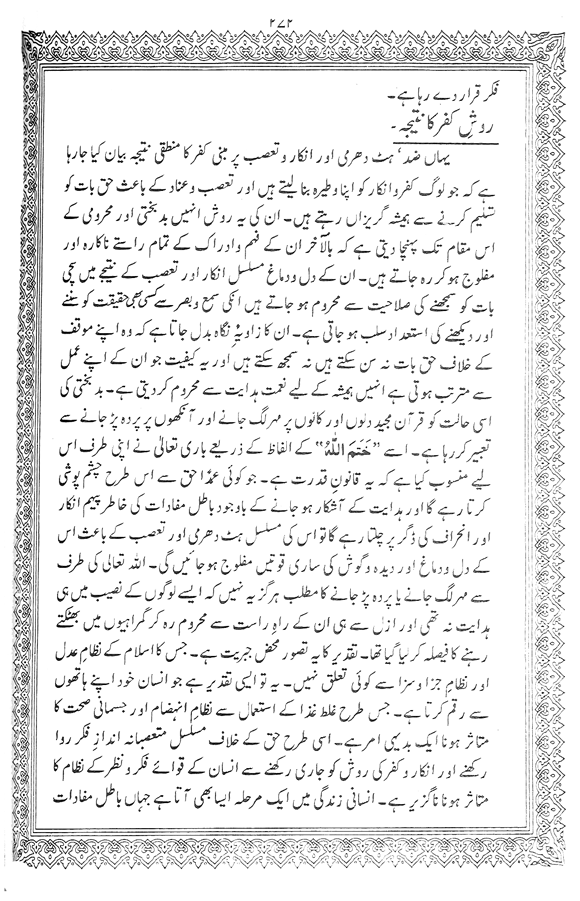 ۲۷۲
فکر قرار دے رہا ہے۔
روشِ کفر کا نتیجہ۔
یہاں ضد‘ ہٹ دھرمی اور انکار و تعصب پر مبنی کفر کا منطقی نتیجہ بیان کیا جا رہا
ہے کہ جو لوگ کفر و انکار کو اپنا وطیرہ بنا لیتے ہیں اور تعصب و عناد کے باعث حق بات کو
تسلیم کرنے سے ہمیشہ گریزاں رہتے ہیں۔ ان کی یہ روش انہیں بدبختی اور محرومی کے
اس مقام تک پہنچا دیتی ہے کہ بالآخر ان کے فہم و ادراک کے تمام راستے ناکارہ اور
مفلوج ہو کر رہ جاتے ہیں۔ ان کے دل و دماغ مسلسل انکار اور تعصب کے نتیجے میں سچی
بات کو سمجھنے کی صلاحیت سے محروم ہو جاتے ہیں انکی سمع و بصر سے کسی بھی حقیقت کو سننے
اور دیکھنے کی استعداد سلب ہو جاتی ہے۔ ان کا زاویۂ نگاہ بدل جاتا ہے کہ وہ اپنے موقف
کے خلاف حق بات نہ سن سکتے ہیں نہ سمجھ سکتے ہیں اور یہ کیفیت جو ان کے اپنے عمل
سے مترتب ہوتی ہے انہیں ہمیشہ کے لیے نعمت ہدایت سے محروم کر دیتی ہے۔ بدبختی کی
اسی حالت کو قرآن مجید دلوں اور کانوں پر مہر لگ جانے اور آنکھوں پر پردہ پڑ جانے سے
تعبیر کر رہا ہے۔ اسے ”خَتَمَ اللّٰهُ“ کے الفاظ کے ذریعے باری تعالیٰ نے اپنی طرف اس
لیے منسوب کیا ہے کہ یہ قانونِ قدرت ہے۔ جو کوئی عمداً حق سے اس طرح چشم پوشی
کرتا رہے گا اور ہدایت کے آشکار ہو جانے کے باوجود باطل مفادات کی خاطر پیہم انکار
اور انحراف کی ڈگر پر چلتا رہے گا تو اس کی مسلسل ہٹ دھرمی اور تعصب کے باعث اس
کے دل و دماغ اور دیدہ و گوش کی ساری قوتیں مفلوج ہو جائیں گی۔ اللہ تعالیٰ کی طرف
سے مہر لگ جانے یا پردہ پڑ جانے کا مطلب ہرگز یہ نہیں کہ ایسے لوگوں کے نصیب میں ہی
ہدایت نہ تھی اور ازل سے ہی ان کے راہِ راست سے محروم رہ کر گمراہیوں میں بھٹکتے
رہنے کا فیصلہ کر لیا گیا تھا۔ تقدیر کا یہ تصور محض جبریت ہے۔ جس کا اسلام کے نظامِ عدل
اور نظامِ جزا و سزا سے کوئی تعلق نہیں۔ یہ تو ایسی تقدیر ہے جو انسان خود اپنے ہاتھوں
سے رقم کرتا ہے۔ جس طرح غلط غذا کے استعمال سے نظامِ انہضام اور جسمانی صحت کا
متاثر ہونا ایک بدیہی امر ہے۔ اسی طرح حق کے خلاف مسلسل متعصبانہ اندازِ فکر روا
رکھنے اور انکار و کفر کی روش کو جاری رکھنے سے انسان کے قوائے فکر و نظر کے نظام کا
متاثر ہونا ناگزیر ہے۔ انسانی زندگی میں ایک مرحلہ ایسا بھی آتا ہے جہاں باطل مفادات